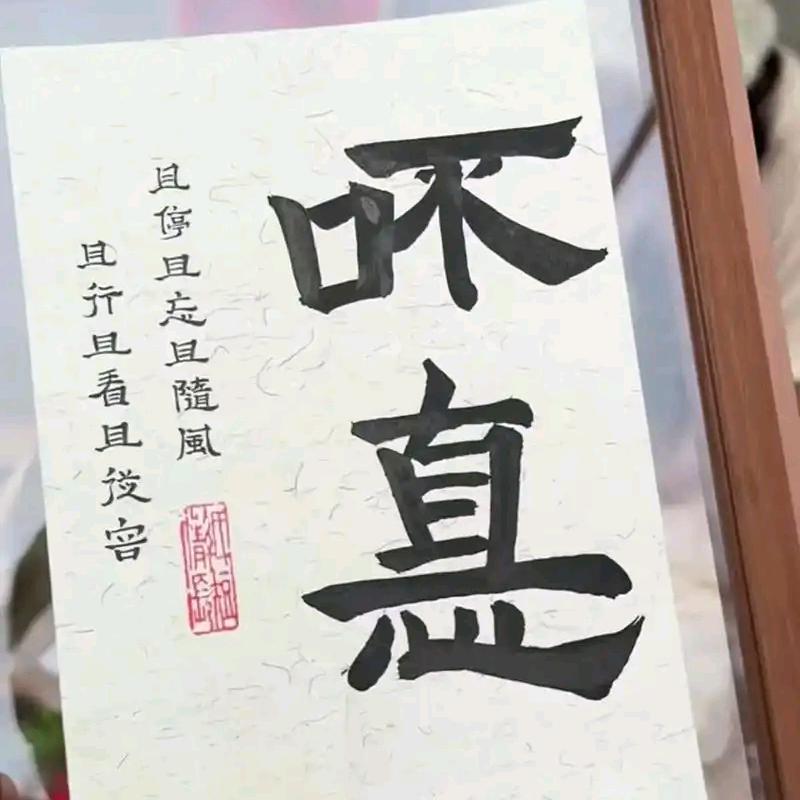 吥悳
且停且忘且隨風
且行且看且從容